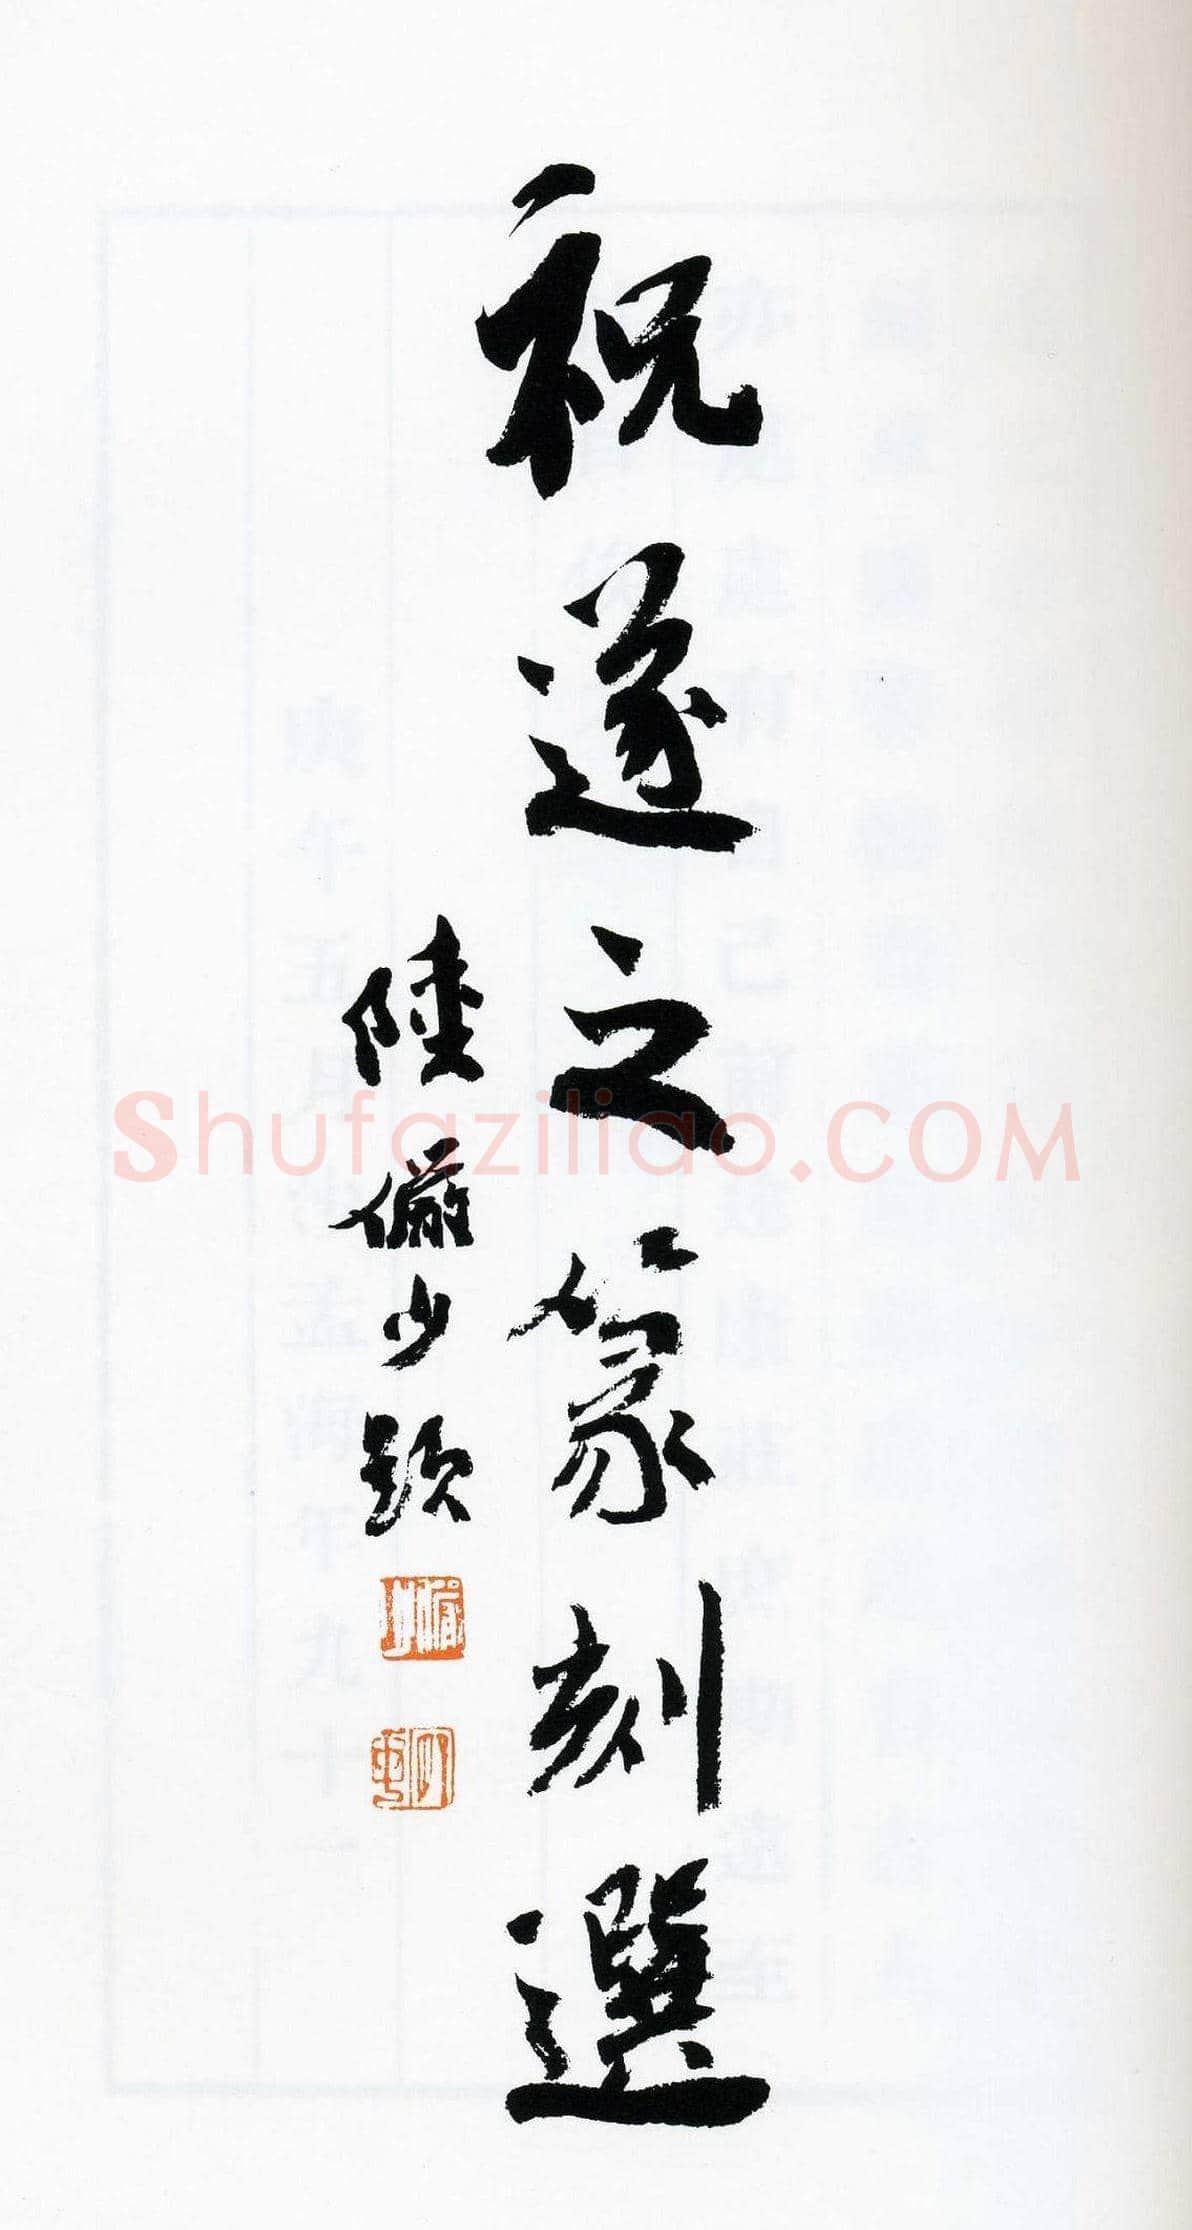 祝遂之篆刻選
陸儼少題
Shufaziliao.COM